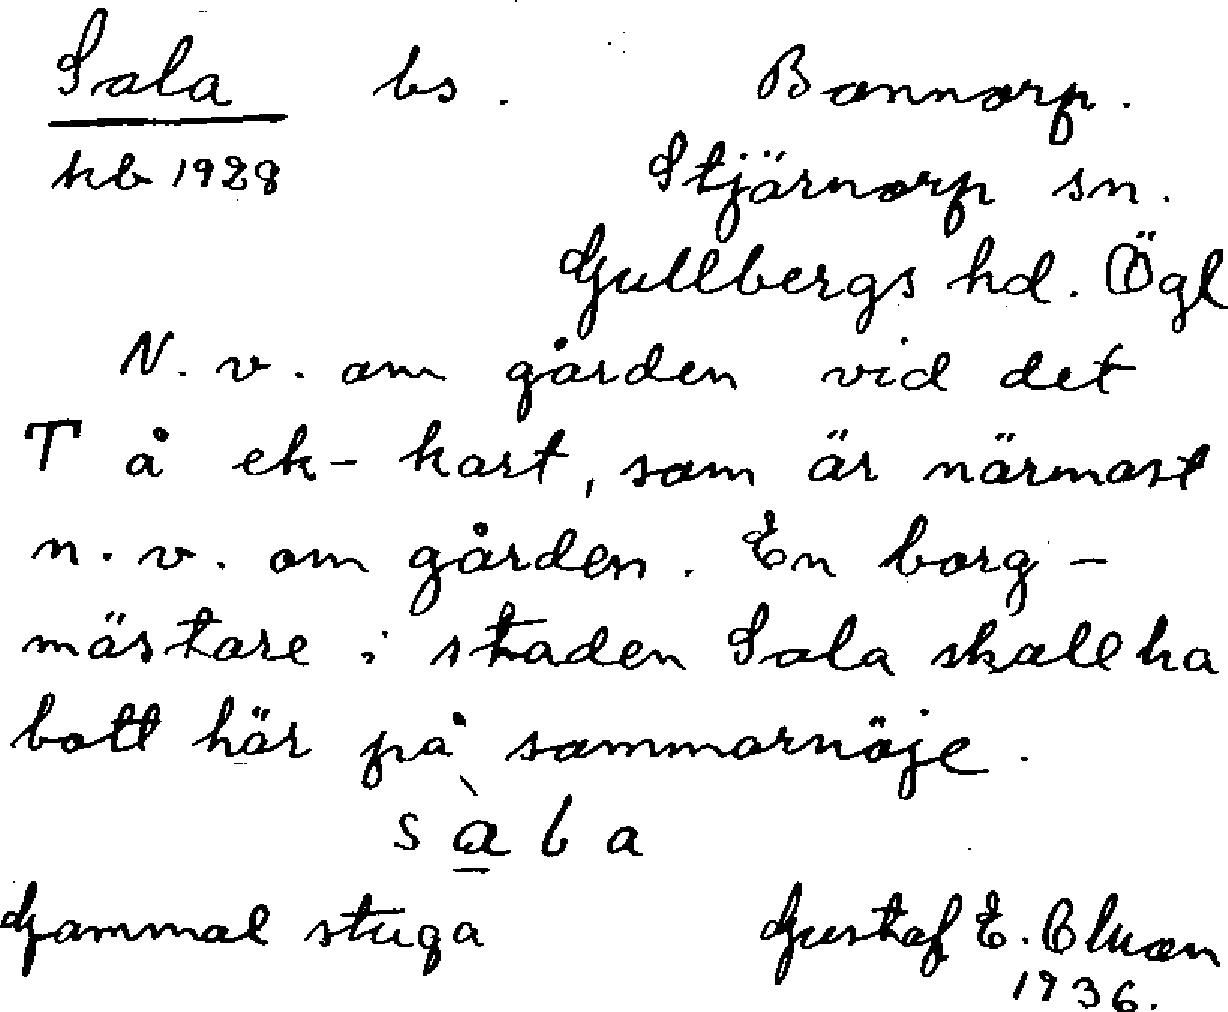 Sala bs. Bonnorp.
kb 1928 Stjärnorp sn.
Gullbergs hd. Ögl
N. v. om gården vid det
T å ek-kart, som är närmast
n. v. om gården. En borg-
mästare i staden Sala skall ha
bott här på sommarnöje.
Gammal stuga Gustaf E.
1936.